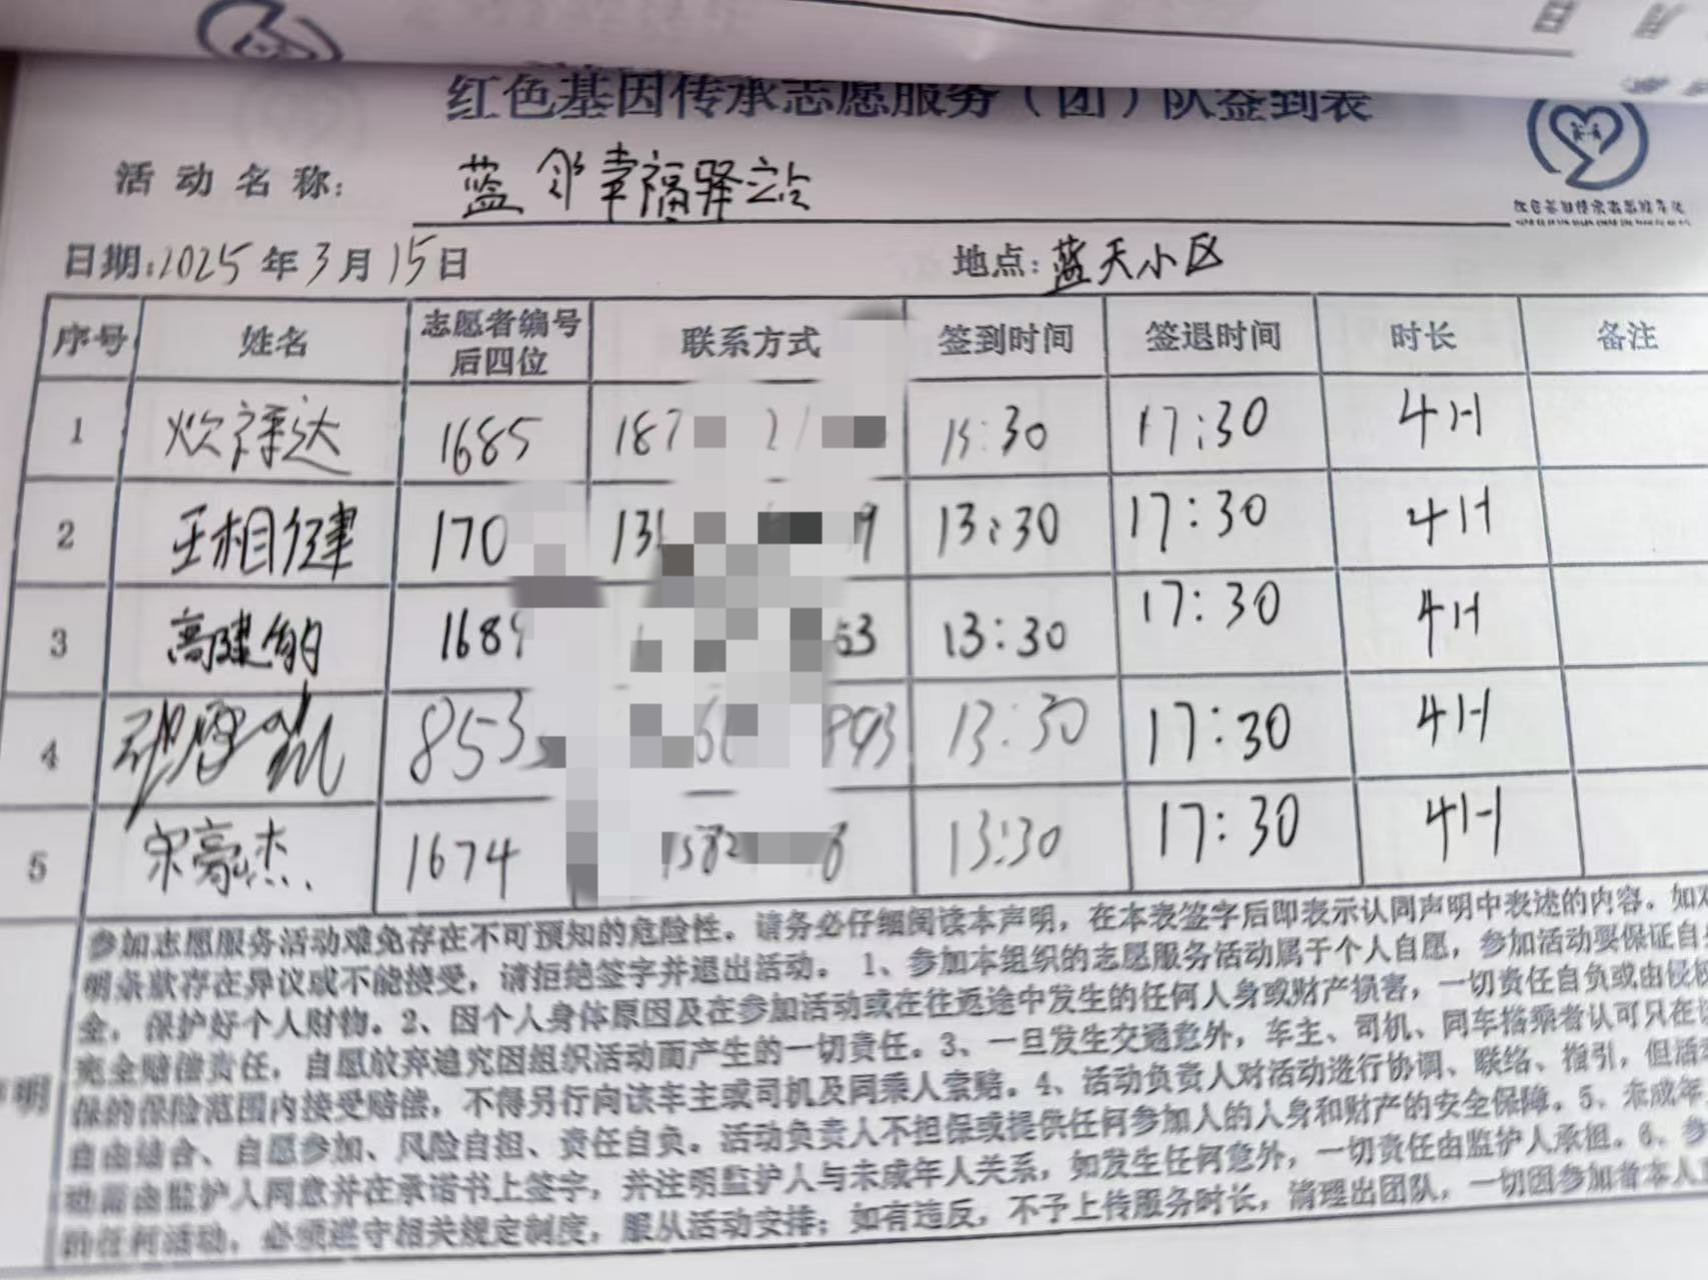 红色基因传承志愿服务（团）队签到表
活动名称： 蓝邻幸福驿站
日期：2025年3月15日 地点：蓝天小区
序号 姓名 志愿者编号后四位 联系方式 签到时间 签退时间 时长 备注
1 祥达 1685 187 21 13:30 17:30 4H
2 王相健 170 13 9 13:30 17:30 4H
3 高建 168 53 13:30 17:30 4H
4 853 893 13:30 17:30 4H
5 宋豪杰 1674 1582 8 13:30 17:30 4H
参加志愿服务活动难免存在不可预知的危险性。请务必仔细阅读本声明，在本表签字后即表示认同声明中表述的内容。如对
明条款存在异议或不能接受，请拒绝签字并退出活动。1、参加本组织的志愿服务活动属于个人自愿，参加活动要保证自身
全，保护好个人财物。2、因个人身体原因及在参加活动或在往返途中发生的任何人身或财产损害，一切责任自负或由侵权
完全赔偿责任，自愿放弃追究因组织活动而产生的一切责任。3、一旦发生交通意外，车主、司机、同车搭乘者认可只在
保的保险范围内接受赔偿，不得另行向该车主或司机及同乘人索赔。4、活动负责人对活动进行协调、联络、指引，但活动
声明
自由结合、自愿参加、风险自担、责任自负。活动负责人不担保或提供任何参加人的人身和财产的安全保障。5、未成年
动需由监护人同意并在承诺书上签字，并注明监护人与未成年人关系，如发生任何意外，一切责任由监护人承担。6、参
的任何活动，必须遵守相关规定制度，服从活动安排；如有违反，不予上传服务时长，清理出团队，一切因参加者本人